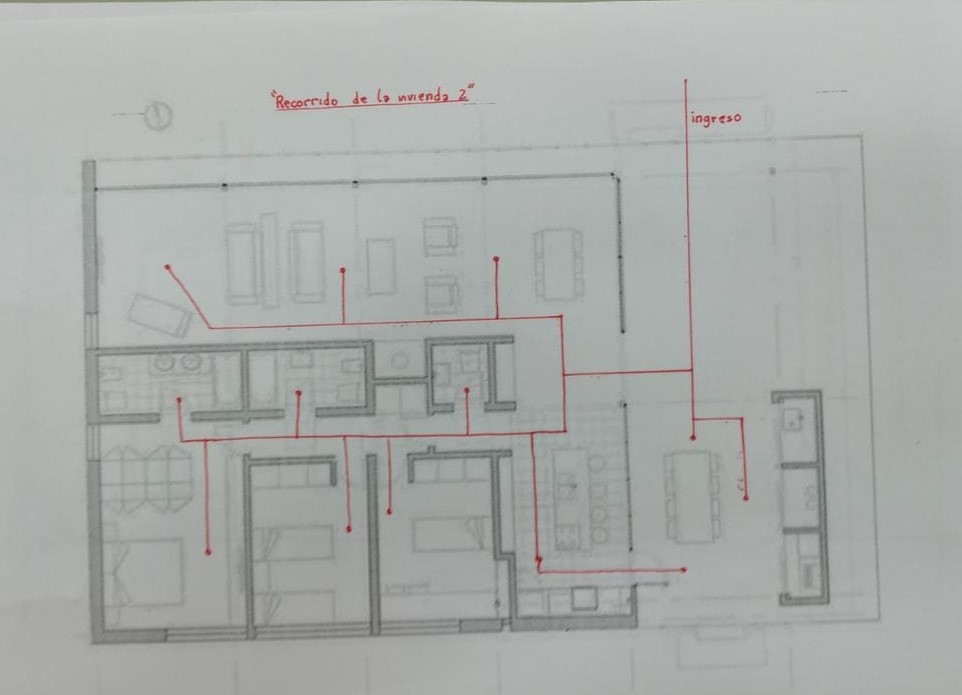 "Recorrido de la vivienda 2"
ingreso